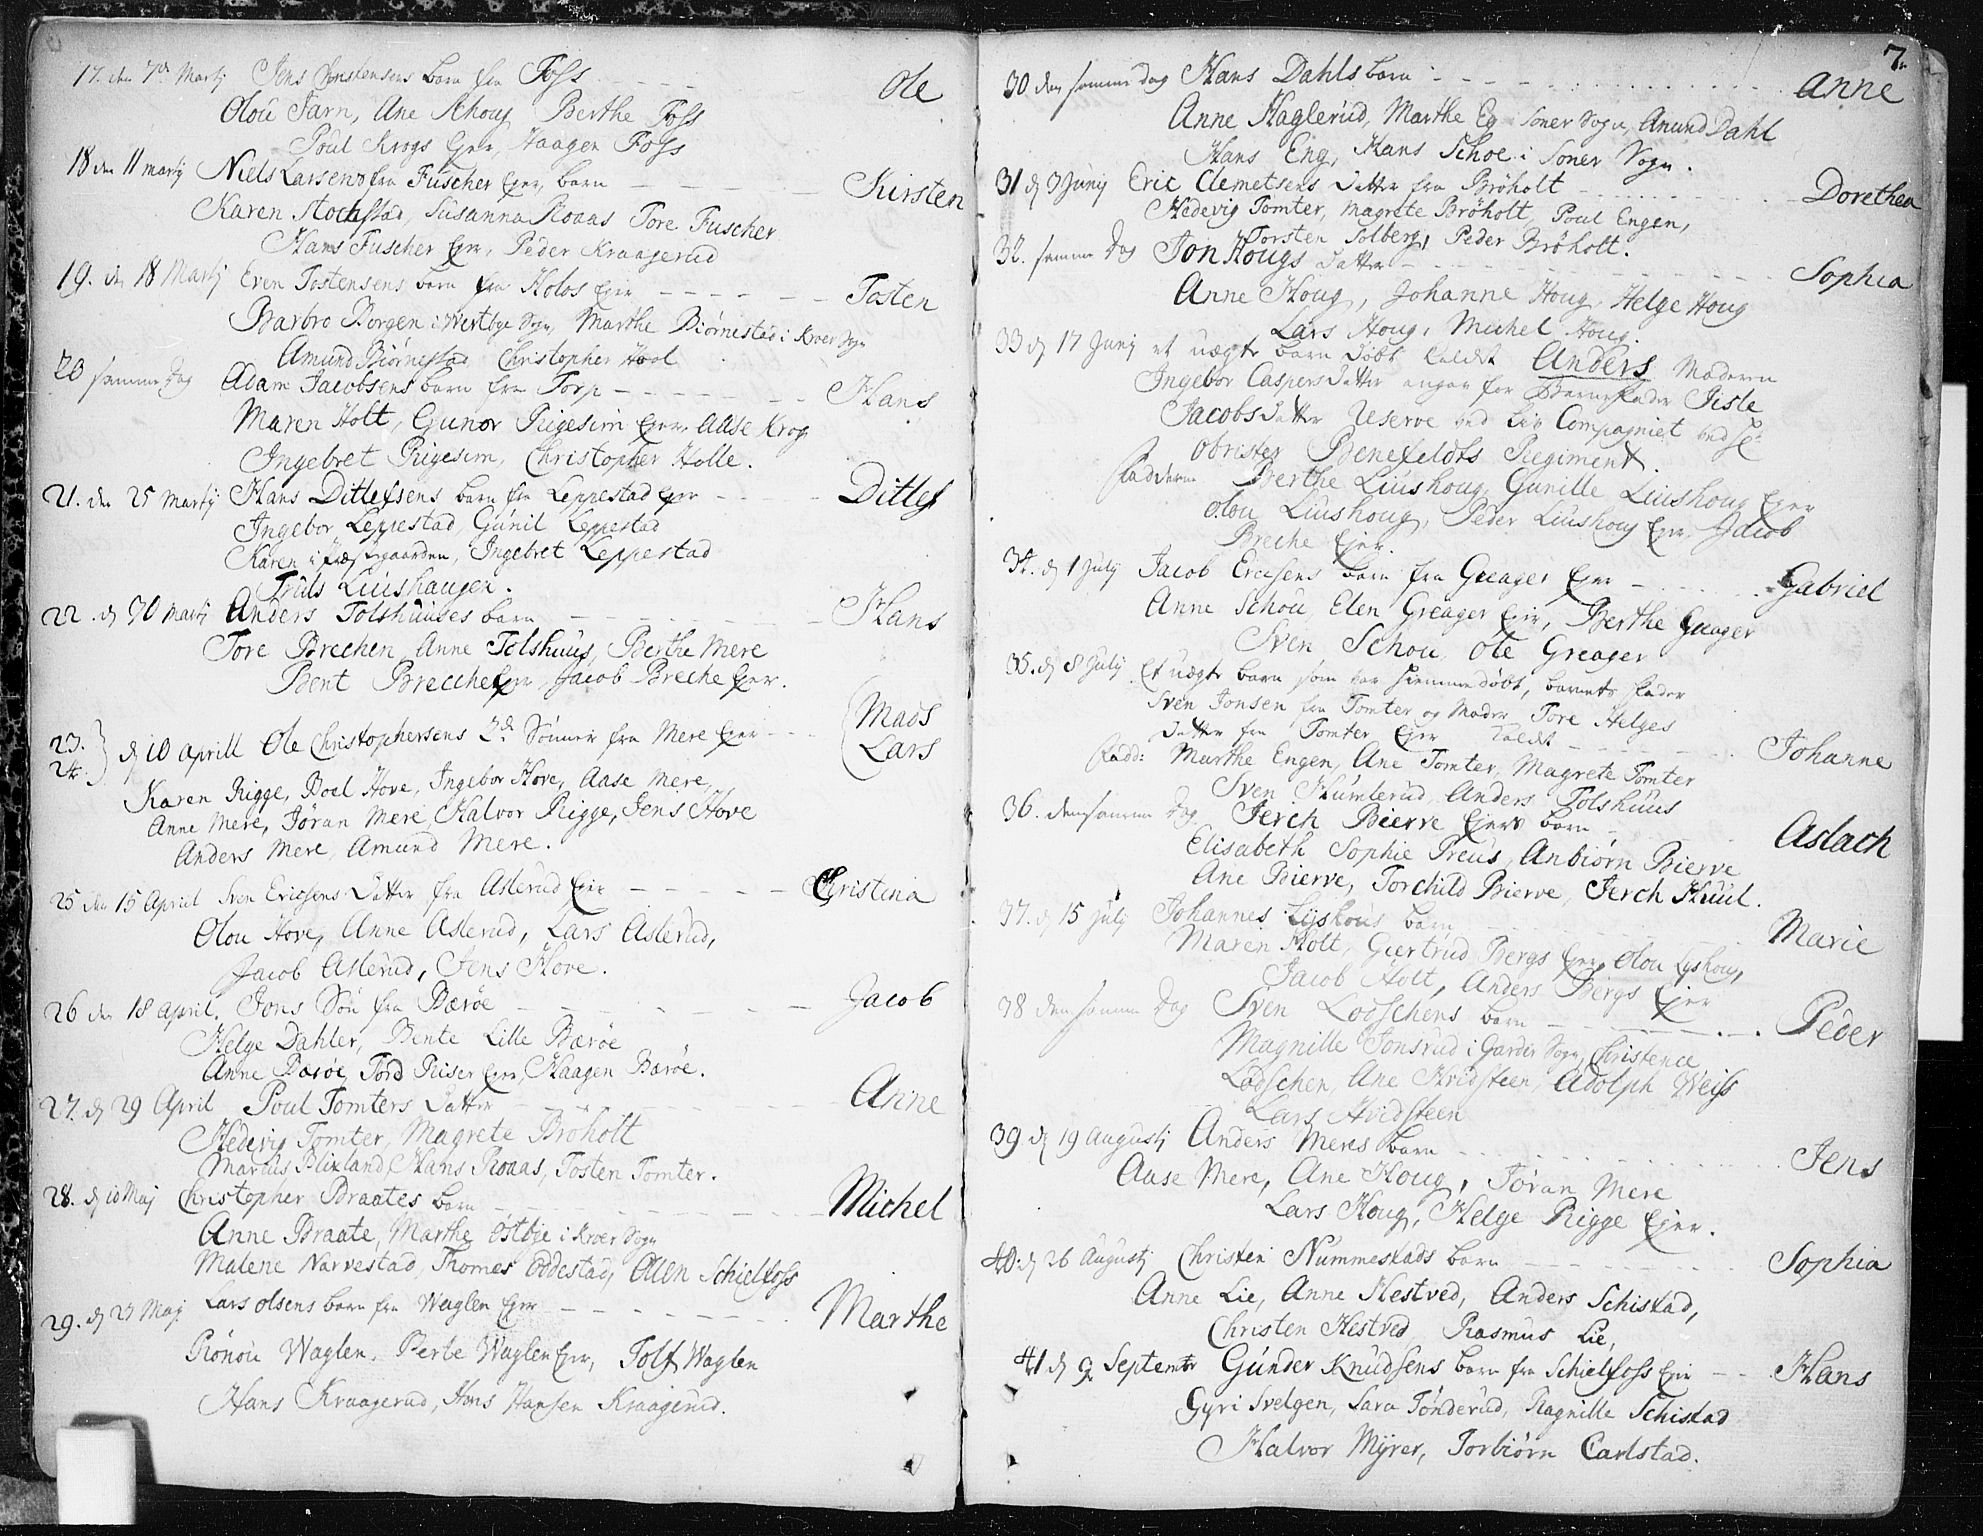 17. den 7de Martij Jens Christensens barn fra Foss - - - Ole
Olou Jarn, Ane Schoug Berthe Foss
Poul Krogs Ejer, Haagen Foss
18 den 11 Martij Niels Larsens fra Fuscher Ejer, barn - - - - - Kirsten
Karen Stochstad, Susanna Roaas Tore Fuscher
Hans Fuscher Ejer, Peder Kraagerud
19. den 18 Martij Even Tostensens barn fra Holos Ejer - - - - - - Tosten
Barbro Borgen i Westbye Sogn, Marthe Biørnestad i Kroer Sogn
Amund Biørnestad Christopher Hool
20 samme Dag Adam Jacobsens barn fra Torp - - - - - - - - Hans
Maren Holt, Gunor Rigesim Ejer, Aase Krog
Ingebret Rigesim, Christopher Holle.
21. den 25 Martij Hans Ditlefsens barn fra Leppestad Ejer - - - - - Ditlef
Ingebor Leppestad, Gunil Leppestad
Karen i Præstegaarden, Ingebret Leppestad
Truls Liushaugen.
22. d 30 Martij Anders Tolshuuses barn - - - - - - - Hans
Tore Brechen, Anne Tolshuus, Berthe Mere
Bent Brecche Ejer, Jacob Breche Ejer.
23. 24. } d 10 Aprill Ole Christophersens 2de Sønner fra Mere Ejer - - - ( Mads
Lars
Karen Rigge, Boel Hove, Ingebor Hove, Aase Mere,
Anne Mere, Jøran Mere, Halvor Rigge, Jens Hove
Anders Mere, Amund Mere.
25 den 15 Apriel Sven Ericsens Datter fra Aslerud Ejer - - - - - Christina
Olou Hove, Anne Aslerud, Lars Aslerud,
Jacob Aslerud, Jens Hove.
26 den 18 April. Jons Søn fra Bærøe - - - - - - - Jacob
Helge Dahler, Bente Lille Bærøe
Anne Bærøe, Tord Riiser Ejer, Haagen Bærøe.
27. d 29 April Poul Tomters Datter - - - - - - - Anne
Hedevig Tomter, Magrete Brøholt
Marcus Blixland, Hans Roaas, Tosten Tomter.
28. d 10 Maj Christopher Braates barn - - - - - - - Michel
Anne Braate, Marthe Østbye i Kroer Sogn
Malene Narvestad, Thomes Oddestad, Ellen Schielfoss
29. d 27 Maj Lars Olsens barn fra Waglen Ejer - - - - - Marthe
Rønou Waglen, Perle Waglen Ejer, Tolf Waglen
Hans Kraagerud, Hans Hansen Kraagerud.
7.
30 den samme Dag Hans Dahls barn - - - - - - - Anne
Anne Haglerud, Marthe Eg Soner Sogn, Amund Dahl
Hans Eng, Hans Schoe i Soner Sogn.
31 d 3 Junij Eric Clemetsens Datter fra Brøholt - - - - - - Dorethea
Hedevig Tomter, Magrete Brøholt, Poul Engen,
Torsten Solberg, Peder Brøholt.
32. samme Dag Jon Hougs Datter - - - - - - - Sophia
Anne Houg, Johanne Houg, Helge Houg
Lars Houg, Michel Houg.
33 d 17 Junij et uægte barn døbt kaldet Anders Moderen
Ingebor Caspers datter angav for Barnefader Jisle
Jacobsdatter Reserve ved Liv Compagniet ved Hr
Obrister Benefeldts Regiment.
Faddere Berthe Liushoug, Gunille Liushoug Ejer
Olou Liushoug, Peder Liushoug Ejer, Jacob
Breche Ejer.
34. d 1 Julij Jacob Ericsens barn fra Greager Ejer - - - - - Gabriel
Anne Schou, Elen Greager Ejer, Berthe Greager
Sven Schou, Ole Greager
35. d 8 Julij Et uægte barn som var hiemmedøbt, barnets Fader
Sven Jonsen fra Tomter og Moder Tore Helges
Datter fra Tomter Ejer kaldet - - - - - - Johanne
Fadd: Marthe Engen, Ane Tomter, Magrete Tomter
Sven Humlerud, Anders Tolshuus
36. den samme Dag Jerch Bierve Ejers barn - - - - Aslach
Elisabeth Sophie Preus, Anbiørn Bierve
Ane Bierve, Torchild Bierve, Jerch Huul.
37. d 15 Julij Johannes Lijshous barn - - - - - - - Marie
Maren Holt, Giertrud Bergs Ejer, Olou Lyshoug,
Jacob Holt, Anders Bergs Ejer
38 den samme Dag Sven Lodschens barn - - - - - - Peder
Magnille Jonsrud i Garder Sogn, Christence
Lodschen, Ane Hvidsteen, Adolph Weiss
Lars Hvidsteen
39 d 19 Augustj Anders Meres barn - - - - - - - Jens
Aase Mere, Ane Houg, Jøran Mere
Lars Houg, Helge Rigge Ejer.
40. d 26 Augustj Christen Nummestads barn - - - - - - Sophia
Anne Lie, Anne Hestved, Anders Schistad,
Christen Hestved Rasmus Lie,
41 d 9 Septembr Gunder Knudsens barn fra Schielfoss Ejer - - Hans
Gyri Svelgen, Sara Tønderud, Ragnille Schistad
Halvor Myrer, Torbiørn Carlstad.